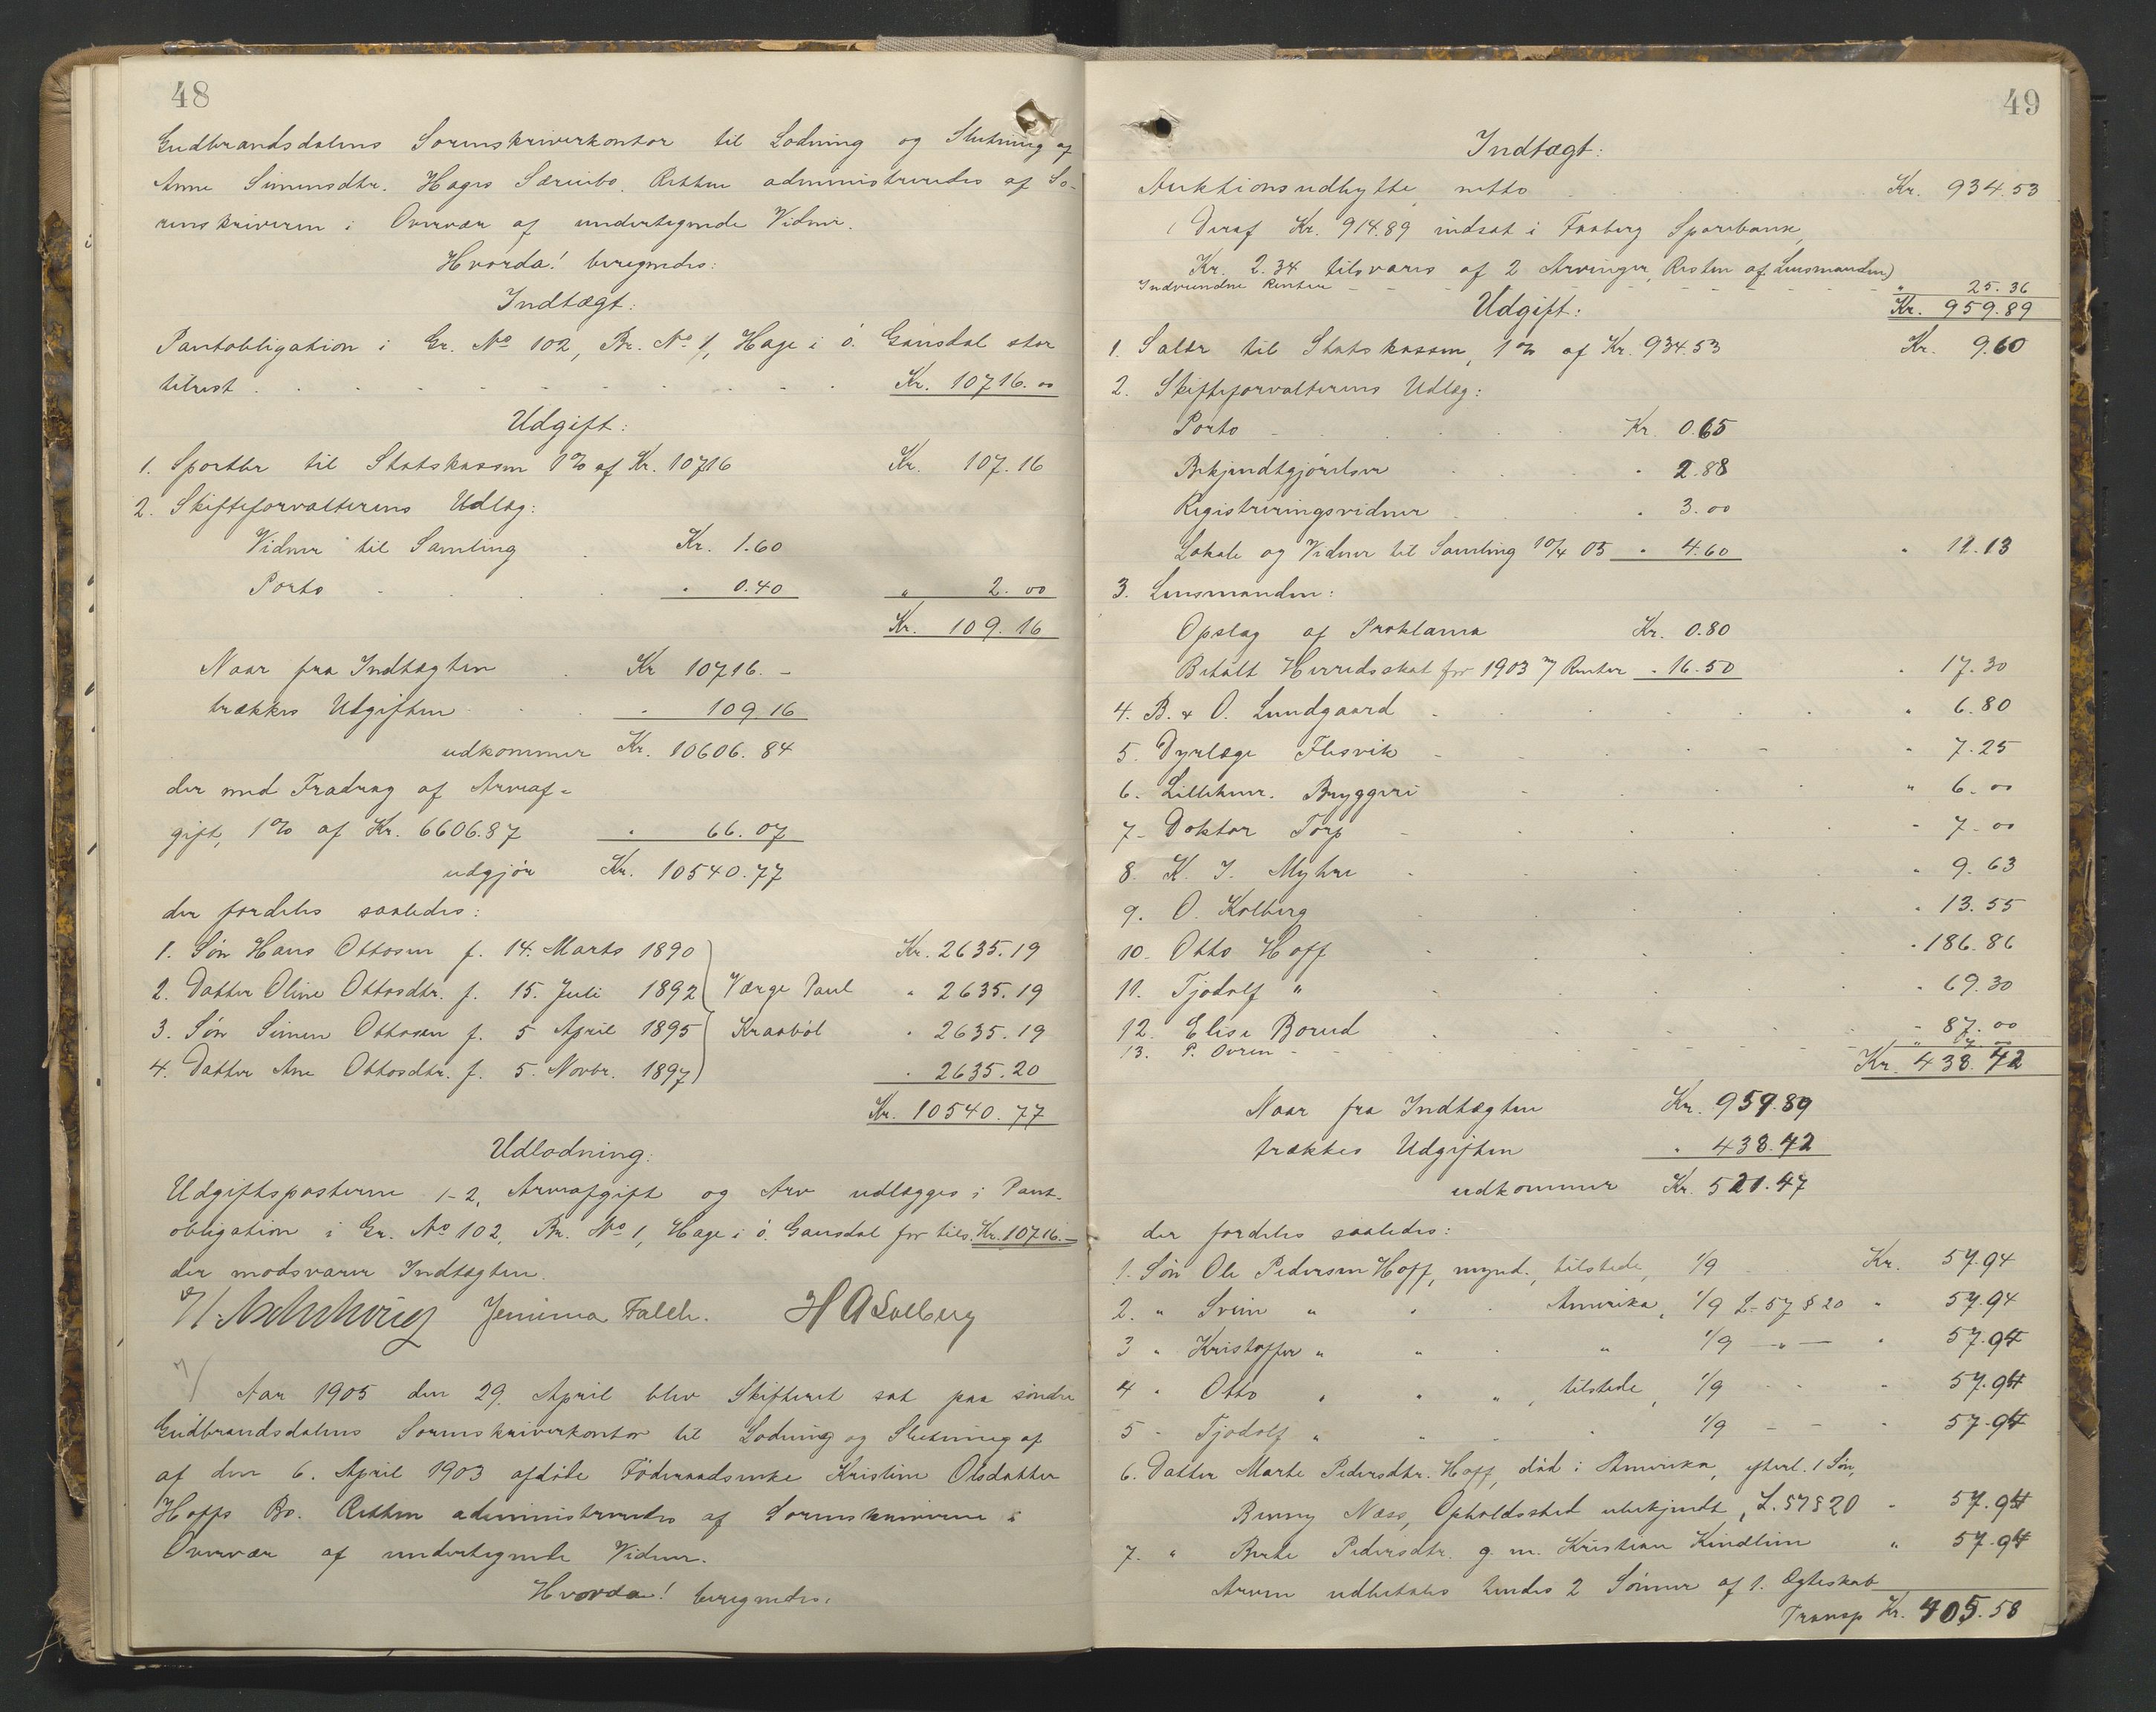 48
Gudbrandsdalens Sorenskriverkontor til Lodning og Slutning af
Anne Simensdtr. Hages Særeibo. Retten administreredes af So-
renskriveren i Overvær af undertegnede Vidner.
Hvorda! beregnedes:
Indtægt:
Pantobligation i Gr. No 102, Br. No 1, Hage i ö. Gausdal stor
tilrest . . . . . Kr. 10716.00
Udgift:
1. Sportler til Statskassen 1% af Kr. 10716 Kr. 107.16
2. Skifteforvalterens Udlæg:
Vidner til Samling . Kr. 1.60
Porto . . . " 0.40 " 2.00
Kr. 109.16
Naar fra Indtægten . Kr 10716.-
trækkes Udgiften . . " 109.16
udkommer Kr. 10606.84
der med Fradrag af Arveaf-
gift, 1% af Kr. 6606.87 " 66.07
udgjör Kr. 10540.77
der fordeles saaledes:
1. Sön Hans Ottosen f. 14. Marts 1890 Kr. 2635.19
2. Datter Oline Ottosdtr. f. 15. Juli 1892 Værge Paul " 2635.19
3. Sön Simen Ottosen f. 5 April 1895 Kraaböl " 2635.19
4. Datter Ane Ottosdtr. f. 5. Novbr. 1897 " 2635.20
Kr. 10540.77
Udlodning:
Udgiftsposterne 1-2, Arveafgift og Arv udlægges i Pant-
obligation i Gr. No 102, Br. No 1, Hage i ö. Gausdal for tils. Kr. 10716.-
der modsvarer Indtægten.
Jemima Falch. H A Solberg
Aar 1905 den 29. April blev Skifteret sat paa söndre
Gudbrandsdalens Sorenskriverkontor til Lodning og Slutning af
af den 6. April 1903 afdöde Föderaadsenke Kristine Olsdatter
Hoffs Bo. Retten administreredes af Sorenskriveren i
Overvær af undertegnede Vidner.
Hvorda! beregnedes:
49
Indtægt:
Auktionsudbytte, netto . . . Kr. 934.53
(Deraf Kr. 914.89 indsat i Faaberg Sparebank,
Kr. 2.34 tilsvares af 2 Arvinger, Resten af Lensmanden)
Indvundne Renter - - - - " 25.36
Udgift: Kr. 959.89
1. Saltr til Statskassen, 1% af Kr. 934.53 Kr. 9.60
2. Skifteforvalterens Udlæg:
Porto - . . . Kr. 0.65
Bekjendtgjörelser . . " 2.88
Registreringsvidner . . " 3.00
Lokale og Vidner til Samling 10/4 05 " 4.60 " 11.13
3. Lensmanden:
Opslag af Proklama Kr. 0.80
Betalt Herredsskat for 1903 m/ Renter " 16.50 " 17.30
4. B. & O. Lundgaard . . . " 6.80
5. Dyrlæge Flesvik - . . . " 7.25
6. Lillehmr. Bryggeri . . . " 6.00
7. Doktor Torp - . . . " 7.00
8. K. J. Myhre . . . " 9.63
9. O. Kolberg . . . " 13.55
10. Otto Hoff . . . " 186.86
11. Tjodolf " . . . " 69.30
12. Elise Borud . . . " 87.00
13. P. Övren - - - -
Kr. 438.42
Naar fra Indtægten Kr. 959.89
trækkes Udgiften " 438.42
udkommer Kr. 521.47
der fordeles saaledes:
1. Sön Ole Pedersen Hoff, mynd., tilstede, 1/9 Kr. 57.94
2. " Svein " " " Amerika, 1/9 L. 57 § 20 " 57.94
3 " Kristoffer " " " " 1/9 -"- " 57.94
4 " Otto " " " , tilstede, 1/9 - - " 57.94
5 " Tjodolf " " " " 1/9 - - " 57.94
6. Datter Marte Pedersdtr. Hoff, död i Amerika, efterl. 1 Sön,
Benny Næss, Opholdssted ubekjendt, L. 57 § 20 " 57.94
7. " Berte Pedersdtr. g. m. Kristian Kindlien " 57.94
Arven udbetales hendes 2 Sönner af 1. Ægteskab
Transp Kr. 405.58